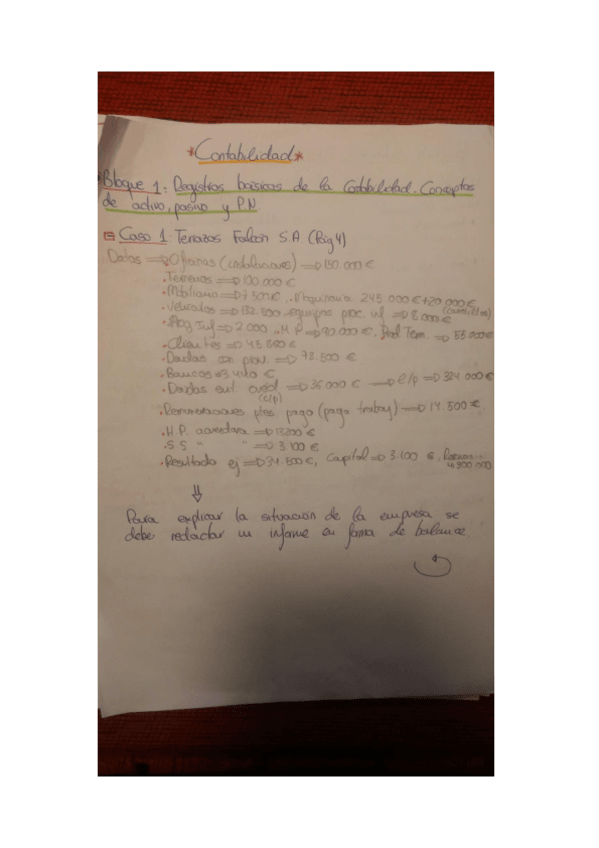 *Contabilidad*
Bloque 1: Registros básicos de la Contabilidad. Conceptos
de activo, pasivo y PN
Caso 1 Terrazos Falcón S.A (Pág 4)
Datos ⇒ Oficinas (instalaciones) ⇒ 150.000 €
• Terrenos ⇒ 100.000 €
• Mobiliario ⇒ 7.500 € . Maquinaria 245.000 € + 20.000 €
• Vehículos ⇒ 132.500 . equipos proc. inf ⇒ 8.000 €
• Aplic Inf ⇒ 2.000 , M.P ⇒ 90.000 €. Prod Term. ⇒ 55.000 €
• Clientes ⇒
• Deudas con prov. ⇒ 78.500 €
• Bancos €
• Deudas ent. créd ⇒ 36.000 € → e/p ⇒ 324.000 €
(c/p)
• Remuneraciones ptes. pago (pago trabaj) ⇒ 14.500 €
• H.P. acreedora ⇒ 13200 €
• S.S " " ⇒ 3.100 €
• Resultado ej ⇒ 34.500 €, Capital ⇒ 3.100 €,
⇓
Para explicar la situación de la empresa se
debe redactar un informe en forma de balance